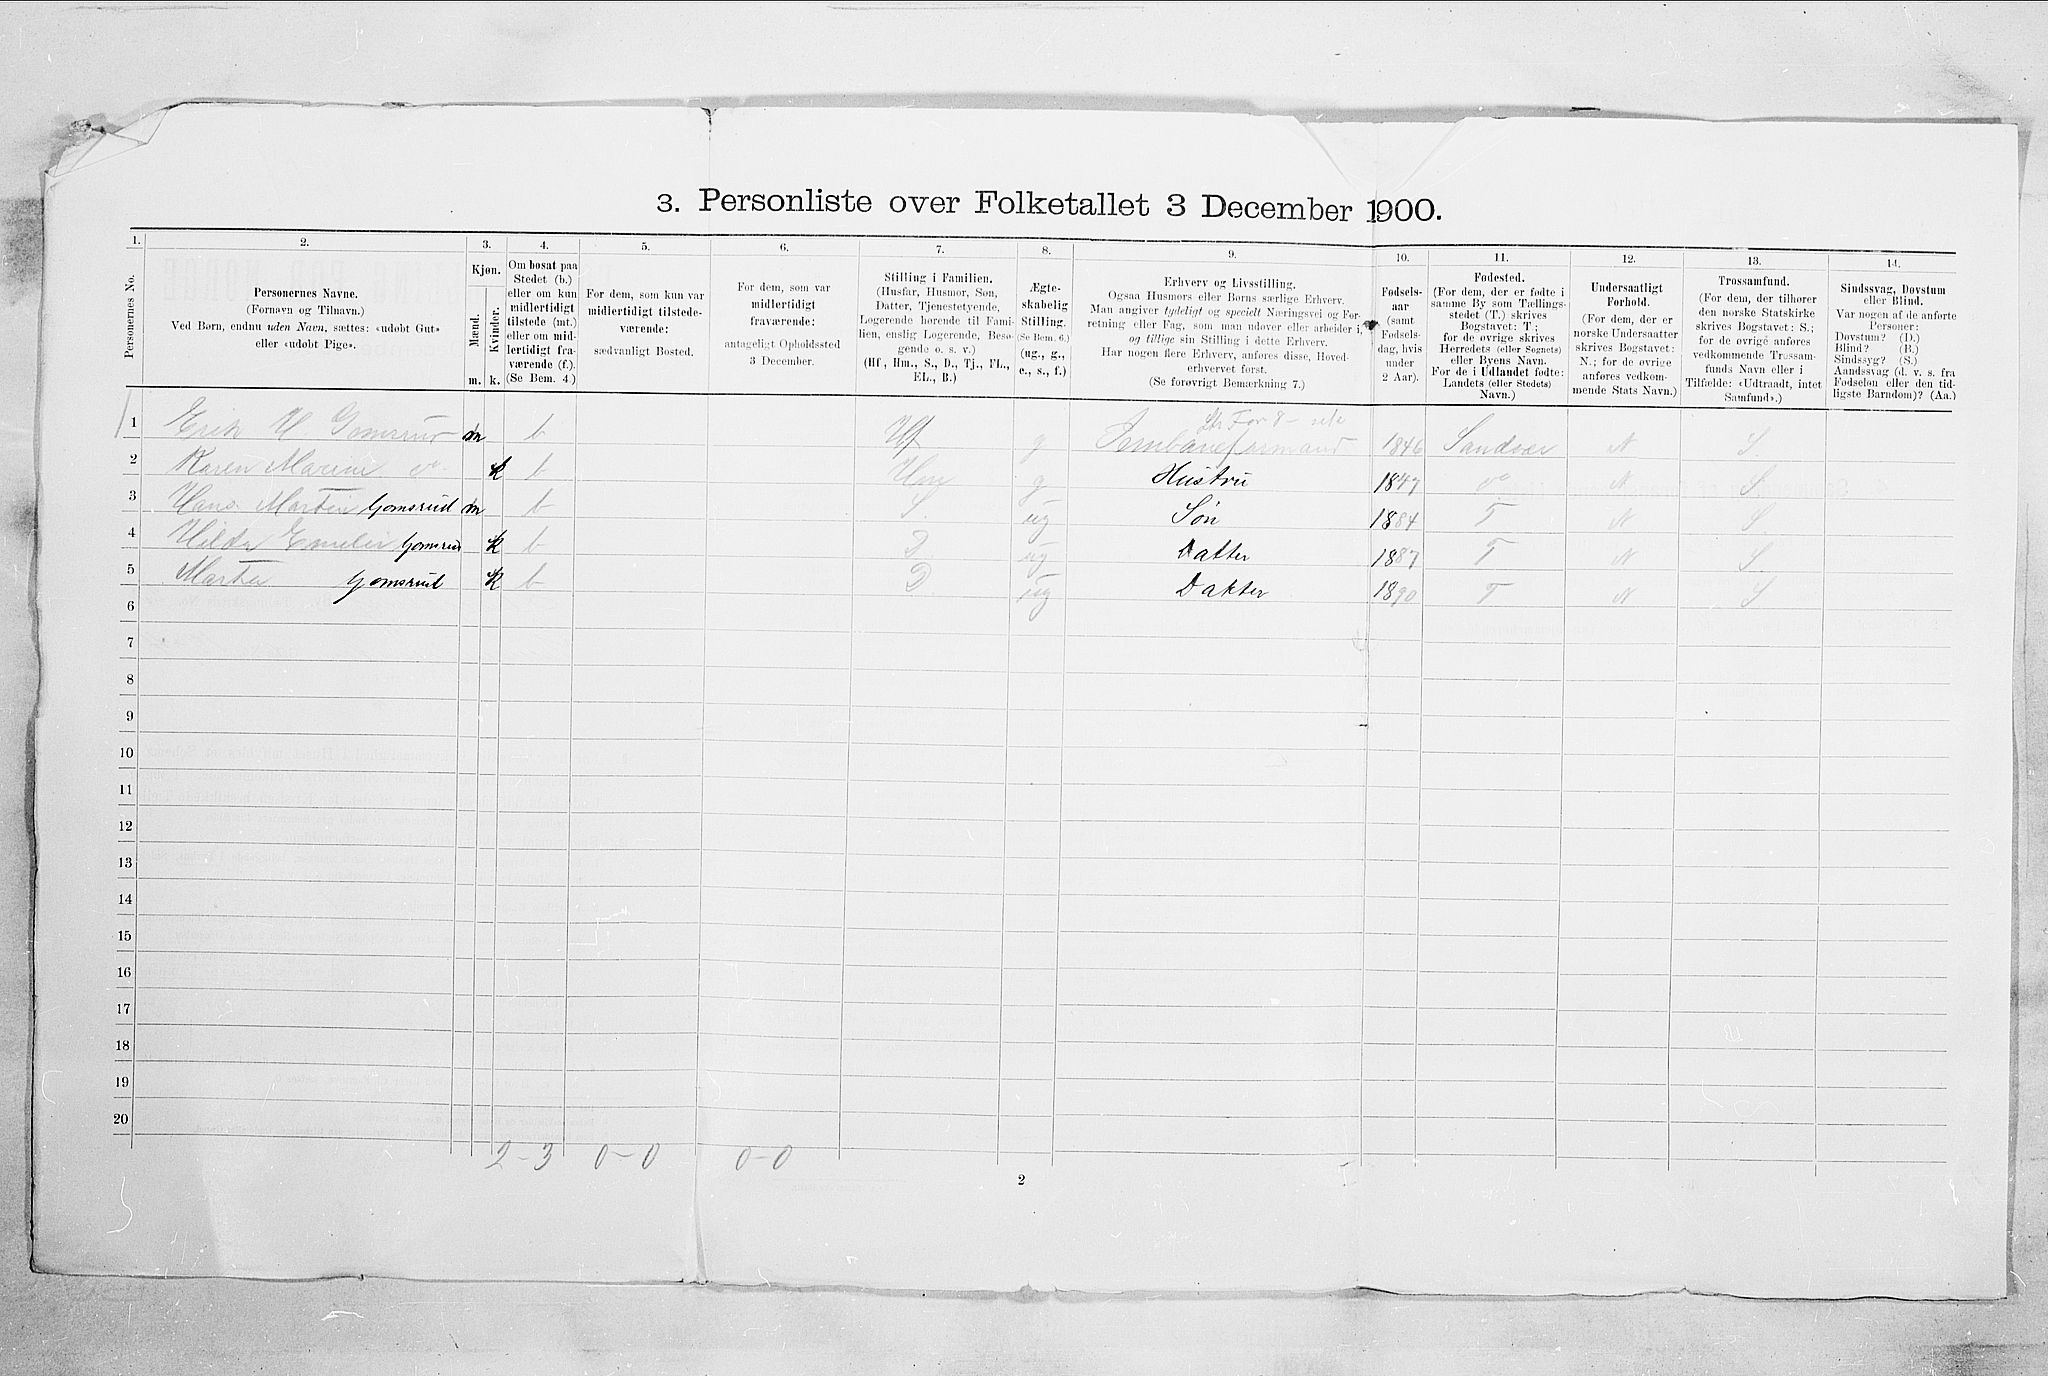 3. Personliste over Folketallet 3 December 1900.
1. 2. 3. 4. 5. 6. 7. 8. 9. 10. 11. 12. 13. 14.
Personernes No.
Personernes Navne.
(Fornavn og Tilnavn.)
Ved Børn, endnu uden Navn, sættes: «udøbt Gut»
eller «udøbt Pige».
Kjøn.
Mænd.
Kvinder.
m. k.
Om bosat paa
Stedet (b.)
eller om kun
midlertidigt
tilstede (mt.)
eller om mid-
lertidigt fra-
værende (f.)
(Se Bem. 4.)
For dem, som kun var
midlertidigt tilstede-
værende:
sædvanligt Bosted.
For dem, som var
midlertidigt
fraværende:
antageligt Opholdssted
3 December.
Stilling i Familien.
(Husfar, Husmor, Søn,
Datter, Tjenestetyende,
Logerende hørende til Fami-
lien, enslig Logerende, Besø-
gende o. s. v.)
(Hf, Hm., S., D., Tj., FL.,
EL., B.)
Ægte-
skabelig
Stilling.
(Se Bem. 6.)
(ug., g.,
e., s., f.)
Erhverv og Livsstilling.
Ogsaa Husmors eller Børns særlige Erhverv.
Man angiver tydeligt og specielt Næringsvei og For-
retning eller Fag, som man udøver eller arbeider i,
og tillige sin Stilling i dette Erhverv.
Har nogen flere Erhverv, anføres disse, Hoved-
erhvervet først.
(Se forøvrigt Bemærkning 7.)
Fødsels-
aar
(samt
Fødsels-
dag, hvis
under
2 Aar).
Fødested.
(For dem, der er fødte i
samme By som Tællings-
stedet (T.) skrives
Bogstavet: T;
for de øvrige skrives
Herredets (eller Sognets)
eller Byens Navn.
For de i Udlandet fødte:
Landets (eller Stedets)
Navn.)
Undersaatligt
Forhold.
(For dem, der er
norske Undersaatter
skrives Bogstavet:
N.; for de øvrige
anføres vedkom-
mende Stats Navn.)
Trossamfund.
(For dem, der tilhører
den norske Statskirke
skrives Bogstavet: S.;
for de øvrige anføres
vedkommende Trossam-
funds Navn eller i
Tilfælde: «Udtraadt, intet
Samfund».)
Sindssvag, Døvstum
eller Blind.
Var nogen af de anførte
Personer:
Døvstum? (D.)
Blind? (B.)
Sindssyg? (S.)
Aandssvag (d. v. s. fra
Fødselen eller den tid-
ligste Barndom)? (Aa.)
1 Erik H Gomsrud m b Hf g 1846 Sandsvær N S.
2 Karen Marine do k b Hm g Hustru 1847 do N S
3 Hans Martin Gomsrud m b S. ug Søn 1884 T N S
4 Hilda Emelie Gomsrud k b D ug Datter 1887 T N S.
5 Martha Gomsrud k b D. ug Dakter 1890 T N S
6
7
8
9
10
11
12
13
14
15
16
17
18
19
20
2-3 0-0 0-0
2